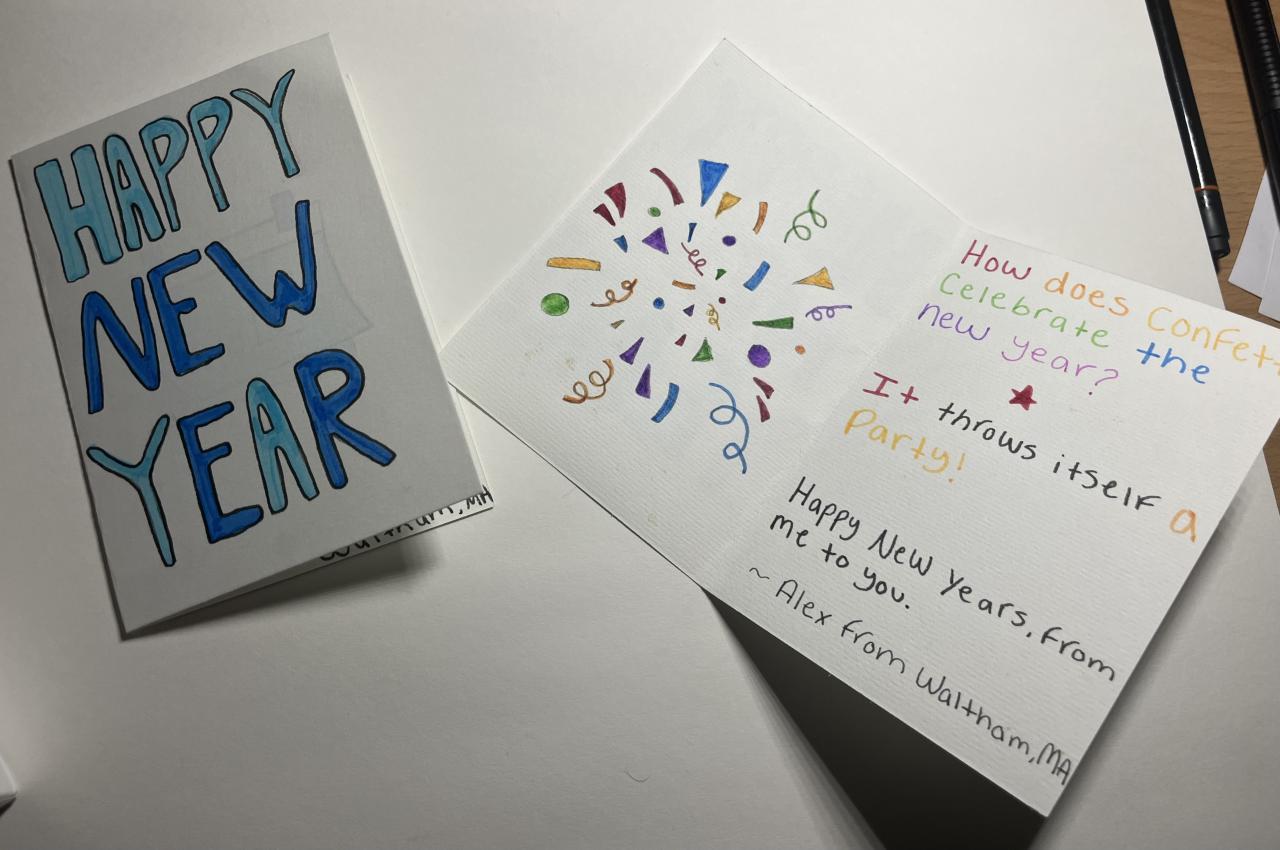 HAPPY
NEW
YEAR
Waltham, MA
How does Confett
Celebrate the
new year?
It throws itself a
Party!
Happy New Years, from
me to you.
~ Alex from Waltham, MA